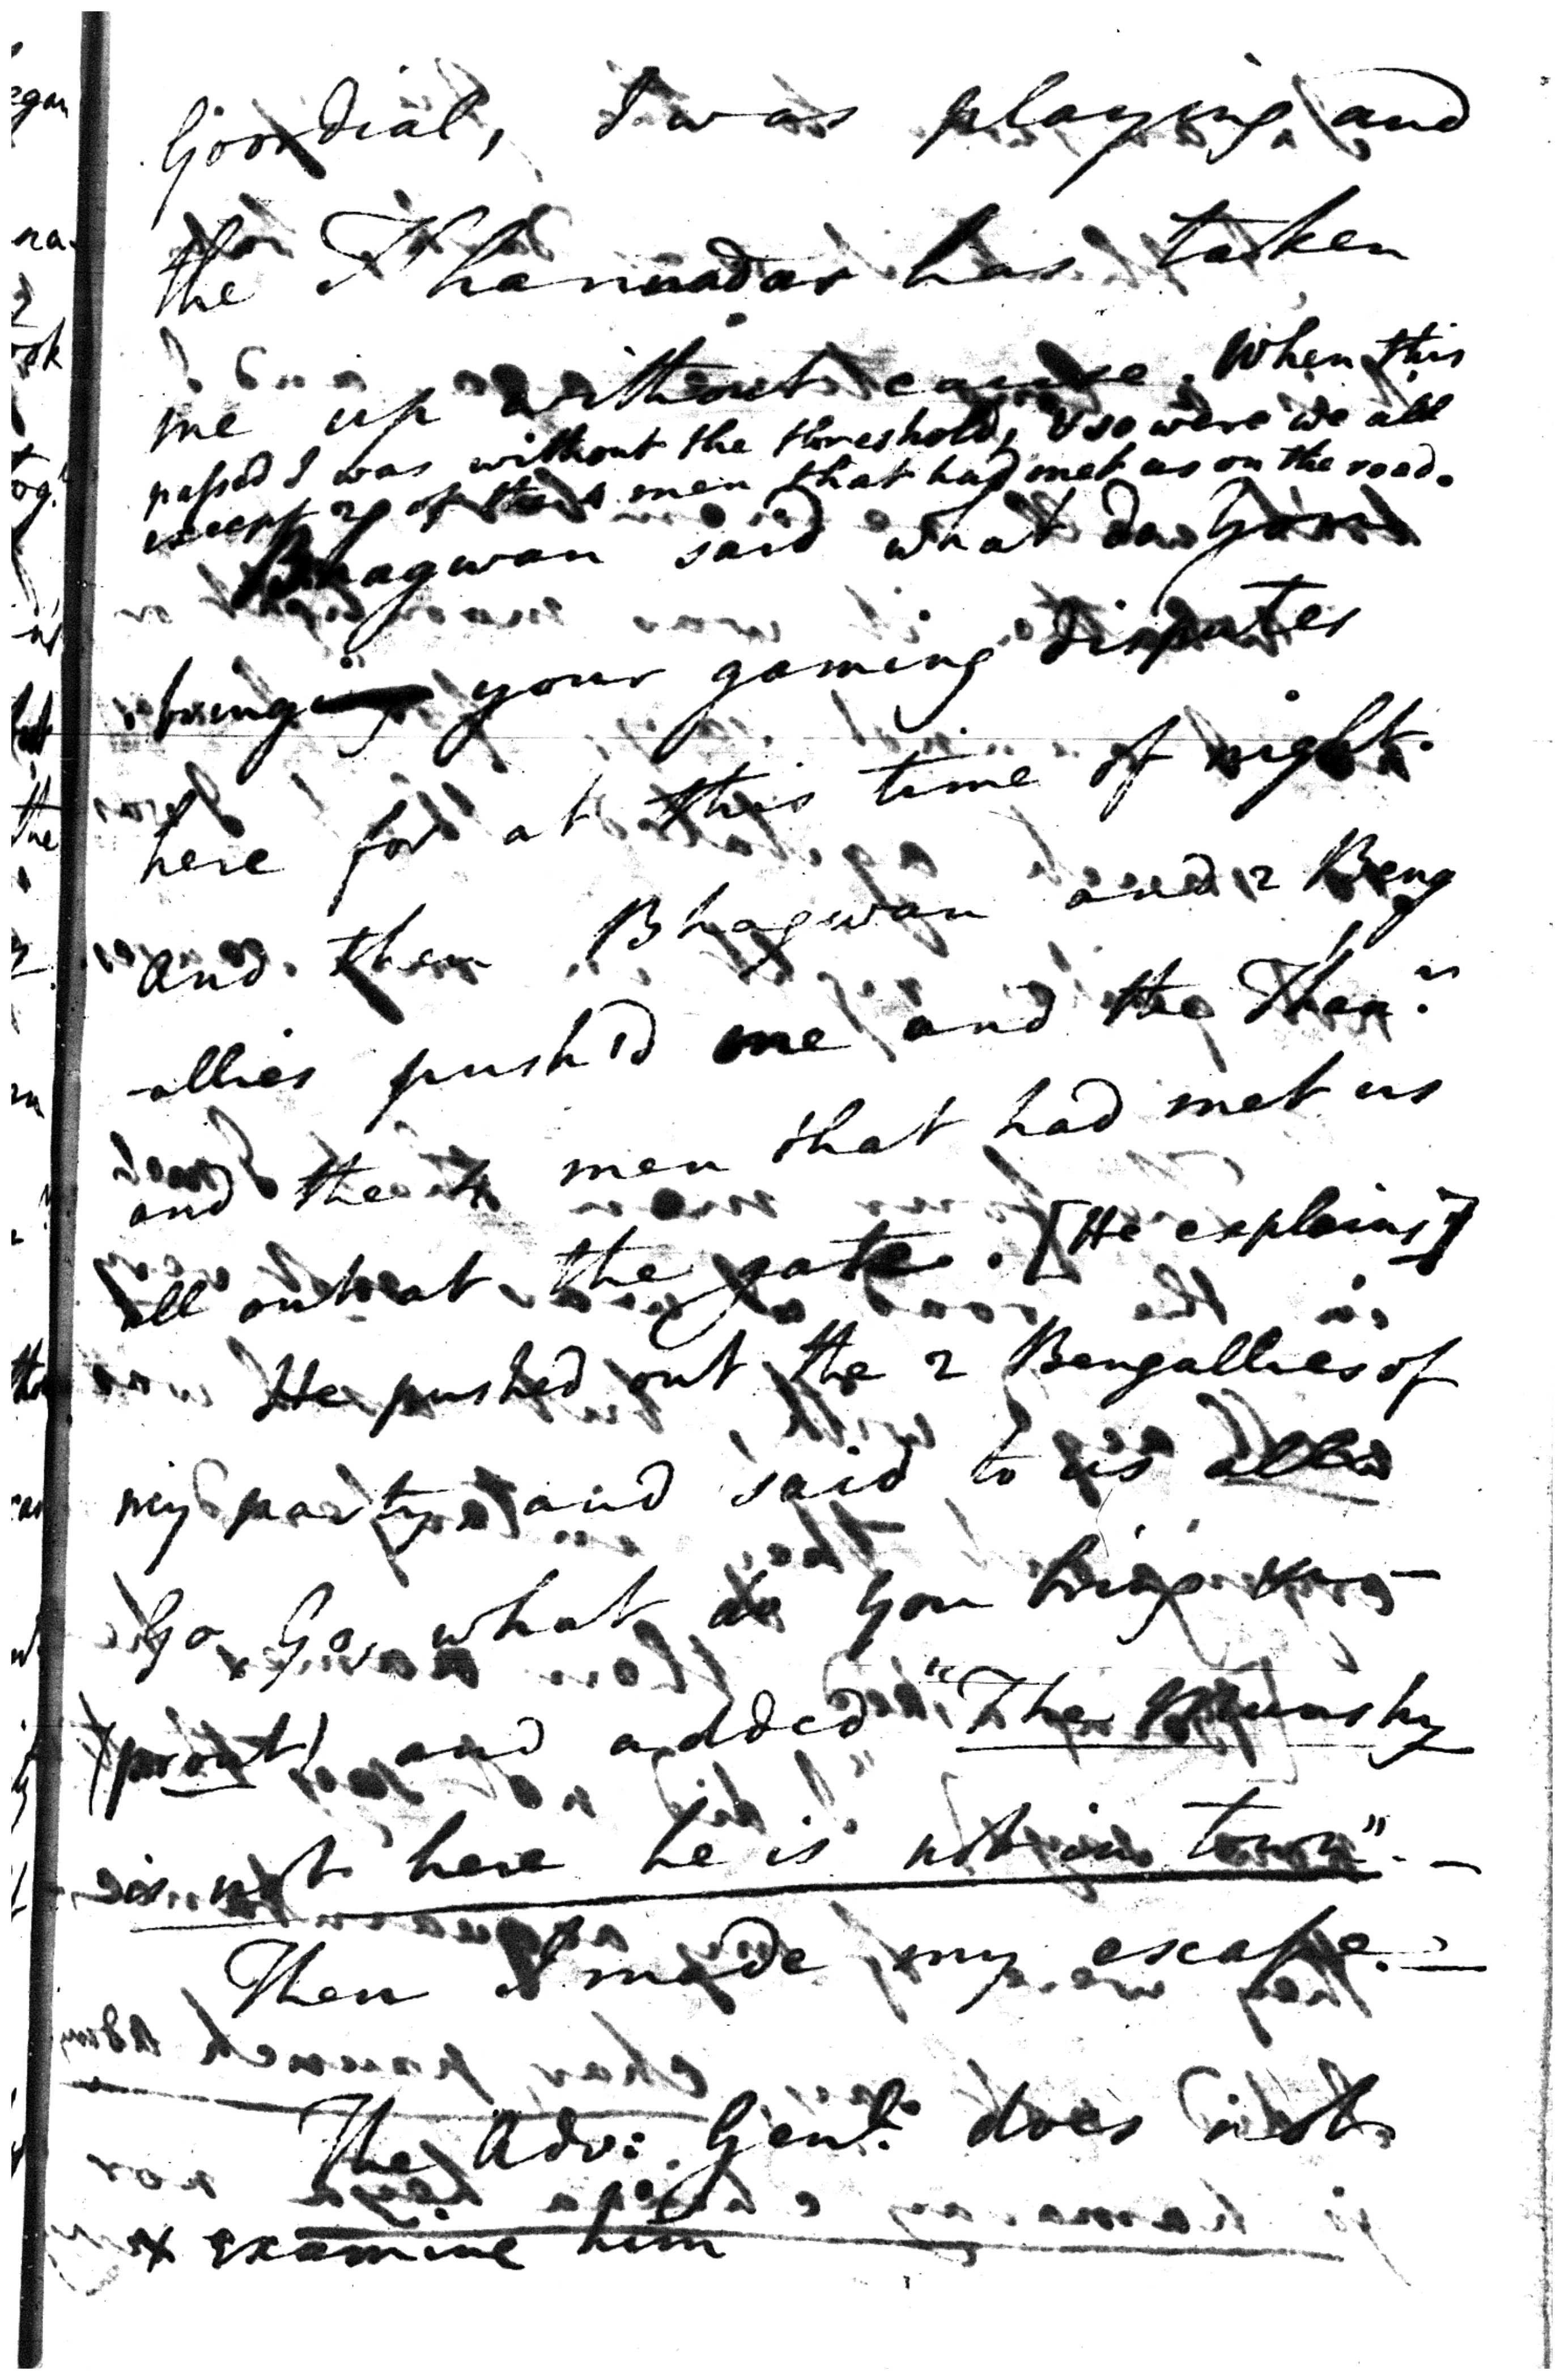 Goordial, I was playing and
the Thannadar has taken
me up without cause. When this
passed I was without the threshold, & so were we all
except 2 of the 4 men that had met us on the road.
Bhagwan said what do you
bring your gaming disputes
here for at this time of night.
and then Bhagwan and 2 Beng
-allies push'd me and the Than.
and the 4 men that had met us
all out at the gate. [He explains]
He pushed out the 2 Bengallies of
my party and said to us all
Go Go, what do you bring
and added "The Munshy
is not here he is not in town".-
Then I made my escape.-
The Adv: Genl. does not
x examine him